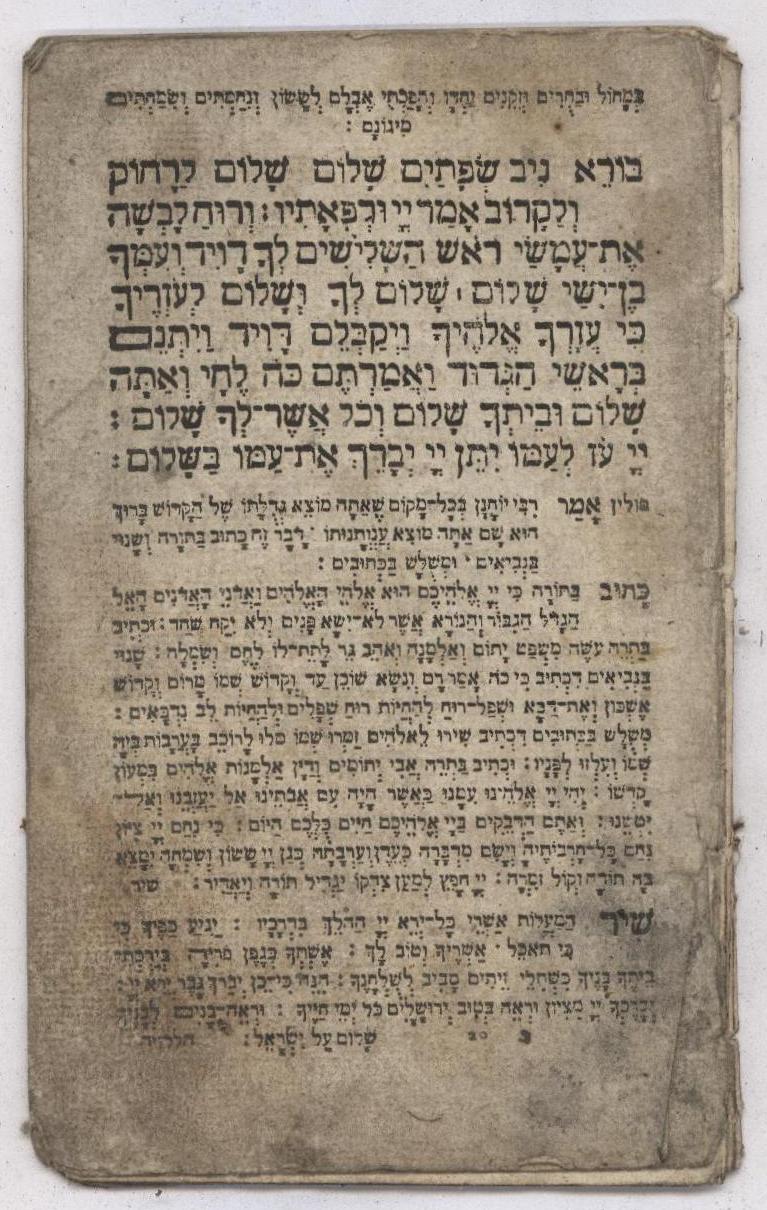 בְּמָחוֹל וּבַחֻרִים וּזְקֵנִים יַחְדָּו וְהָפַכְתִּי אֶבְלָם לְשָׂשׂוֹן וְנִחַמְתִּים וְשִׂמַּחְתִּים
מִיגוֹנָם :
בּוֹרֵא נִיב שְׂפָתָיִם שָׁלוֹם שָׁלוֹם לָרָחוֹק
וְלַקָּרוֹב אָמַר יְיָ וּרְפָאתִיו : וְרוּחַ לָבְשָׁה
אֶת־עֲמָשַׂי רֹאשׁ הַשָּׁלִישִׁים לְךָ דָוִיד וְעִמְּךָ
בֶּן־יִשַׁי שָׁלוֹם ׀ שָׁלוֹם לְךָ וְשָׁלוֹם לְעֹזְרֶיךָ
כִּי עֲזָרְךָ אֱלֹהֶיךָ וַיְקַבְּלֵם דָּוִיד וַיִּתְּנֵם
בְּרָאשֵׁי הַגְּדוּד וַאֲמַרְתֶּם כֹּה לֶחָי וְאַתָּה
שָׁלוֹם וּבֵיתְךָ שָׁלוֹם וְכֹל אֲשֶׁר־לְךָ שָׁלוֹם :
יְיָ עֹז לְעַמּוֹ יִתֵּן יְיָ יְבָרֵךְ אֶת־עַמּוֹ בַשָּׁלוֹם :
חולין אָמַר רַבִּי יוֹחָנָן בְּכָל־מָקוֹם שֶׁאַתָּה מוֹצֵא גְּדֻלָּתוֹ שֶׁל הַקָּדוֹשׁ בָּרוּךְ
הוּא שָׁם אַתָּה מוֹצֵא עַנְוְתָנוּתוֹ ׳ דָּבָר זֶה כָּתוּב בַּתּוֹרָה וְשָׁנוּי
בַּנְּבִיאִים ׳ וּמְשֻׁלָּשׁ בַּכְּתוּבִים :
כָּתוּב בַּתּוֹרָה כִּי יְיָ אֱלֹהֵיכֶם הוּא אֱלֹהֵי הָאֱלֹהִים וַאֲדֹנֵי הָאֲדֹנִים הָאֵל
הַגָּדֹל הַגִּבּוֹר וְהַנּוֹרָא אֲשֶׁר לֹא־יִשָּׂא פָנִים וְלֹא יִקַּח שֹׁחַד : וּכְתִיב
בַּתְרֵהּ עֹשֶׂה מִשְׁפַּט יָתוֹם וְאַלְמָנָה וְאֹהֵב גֵּר לָתֶת־לוֹ לֶחֶם וְשִׂמְלָה : שָׁנוּי
בַּנְּבִיאִים דִּכְתִיב כִּי כֹה אָמַר רָם וְנִשָּׂא שׁוֹכֵן עַד וְקָדוֹשׁ שְׁמוֹ מָרוֹם וְקָדוֹשׁ
אֶשְׁכּוֹן וְאֶת־דַּכָּא וּשְׁפַל־רוּחַ לְהַחֲיוֹת רוּחַ שְׁפָלִים וּלְהַחֲיוֹת לֵב נִדְכָּאִים :
מְשֻׁלָּשׁ בַּכְּתוּבִים דִּכְתִיב שִׁירוּ לֵאלֹהִים זַמְּרוּ שְׁמוֹ סֹלּוּ לָרוֹכֵב בָּעֲרָבוֹת בְּיָהּ
שְׁמוֹ וְעִלְזוּ לְפָנָיו : וּכְתִיב בַּתְרֵהּ אֲבִי יְתוֹמִים וְדַיַּן אַלְמָנוֹת אֱלֹהִים בִּמְעוֹן
קָדְשׁוֹ : יְהִי יְיָ אֱלֹהֵינוּ עִמָּנוּ כַּאֲשֶׁר הָיָה עִם אֲבֹתֵינוּ אַל יַעַזְבֵנוּ וְאַל־
יִטְּשֵׁנוּ : וְאַתֶּם הַדְּבֵקִים בַּיְיָ אֱלֹהֵיכֶם חַיִּים כֻּלְּכֶם הַיּוֹם : כִּי נִחַם יְיָ צִיּוֹן
נִחַם כָּל־חָרְבֹתֶיהָ וַיָּשֶׂם מִדְבָּרָהּ כְּעֵדֶן וְעַרְבָתָהּ כְּגַן יְיָ שָׂשׂוֹן וְשִׂמְחָה יִמָּצֵא
בָהּ תּוֹדָה וְקוֹל זִמְרָה : יְיָ חָפֵץ לְמַעַן צִדְקוֹ יַגְדִּיל תּוֹרָה וְיַאְדִּיר : שיר
שִׁיר הַמַּעֲלוֹת אַשְׁרֵי כָּל־יְרֵא יְיָ הַהֹלֵךְ בִּדְרָכָיו : יְגִיעַ כַּפֶּיךָ כִּי
כִּי תֹאכֵל ׳ אַשְׁרֶיךָ וְטוֹב לָךְ : אֶשְׁתְּךָ כְּגֶפֶן פֹּרִיָּה בְּיַרְכְּתֵי
בֵיתֶךָ בָּנֶיךָ כִּשְׁתִלֵי זֵיתִים סָבִיב לְשֻׁלְחָנֶךָ : הִנֵּה כִי־כֵן יְבֹרַךְ גָּבֶר יְרֵא יְיָ :
יְבָרֶכְךָ יְיָ מִצִּיּוֹן וּרְאֵה בְּטוּב יְרוּשָׁלָיִם כֹּל יְמֵי חַיֶּיךָ : וּרְאֵה־בָנִים לְבָנֶיךָ
שָׁלוֹם עַל יִשְׂרָאֵל :